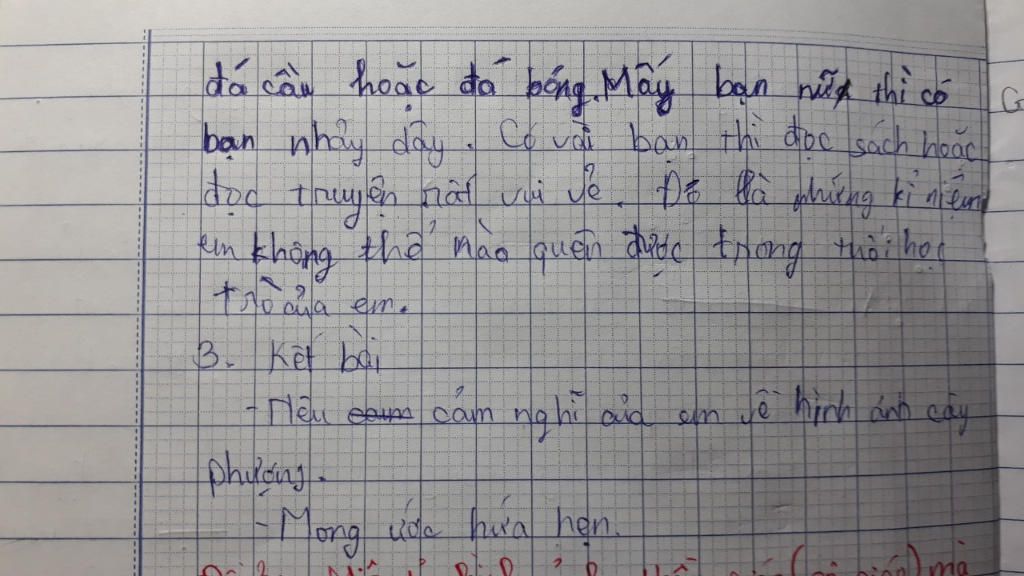 đá cầu hoặc đá bóng. Mấy bạn nữ thì có
bạn nhảy dây. Có vài bạn thì đọc sách hoặc
đọc truyện rất vui vẻ. Đó là những kỉ niệm
em không thể nào quên được trong thời học
trò của em.
3. Kết bài
- Nêu cảm nghĩ của em về hình ảnh cây
phượng.
- Mong ước hứa hẹn.